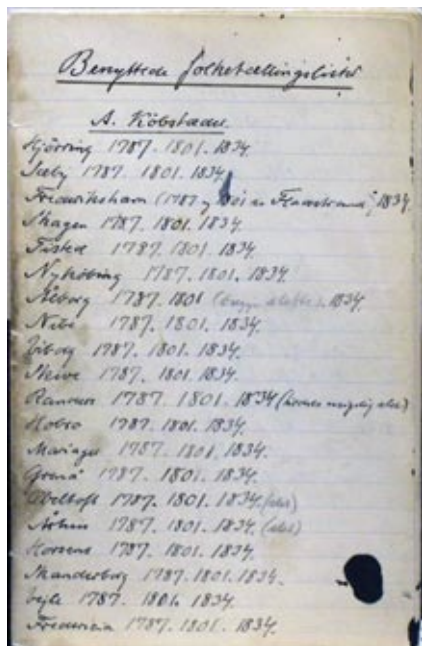 Benyttede folketællingslister
A. Köbstæder.
Hjörring 1787. 1801. 1834.
Sæby 1787. 1801. 1834.
Frederikshavn (1787 og 1801 se Fladstrand), 1834.
Skagen 1787. 1801. 1834.
Tisted 1787. 1801. 1834.
Nyköbing 1787. 1801. 1834.
Ålborg 1787. 1801 1834.
Nibe 1787. 1801. 1834.
Viborg 1787. 1801. 1834.
Skive 1787. 1801. 1834.
Randers 1787. 1801. 1834
Hobro 1787. 1801. 1834.
Mariager 1787. 1801. 1834.
Grenå 1787. 1801. 1834.
Æbeltoft 1787. 1801. 1834.
Århus 1787. 1801. 1834.
Horsens 1787. 1801. 1834.
Skanderborg 1787. 1801. 1834.
Vejle 1787. 1801. 1834.
Fredericia 1787. 1801. 1834.